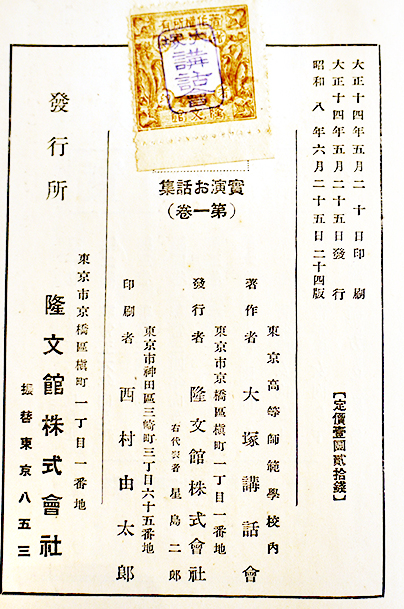 大正十四年五月二十日印刷
大正十四年五月二十五日發行
昭和八年六月二十五日二十四版
【定價壹圓貳拾錢】
大塚講話會
隆文館
實演お話集
（第一卷）
東京高等師範學校內
著作者 大塚講話會
東京市京橋區槇町一丁目一番地
發行者 隆文館株式會社
右代表者 星島二郎
東京市神田區三崎町三丁目六十五番地
印刷者 西村由太郎
發行所
東京市京橋區槇町一丁目一番地
隆文館株式會社
振替東京八五三